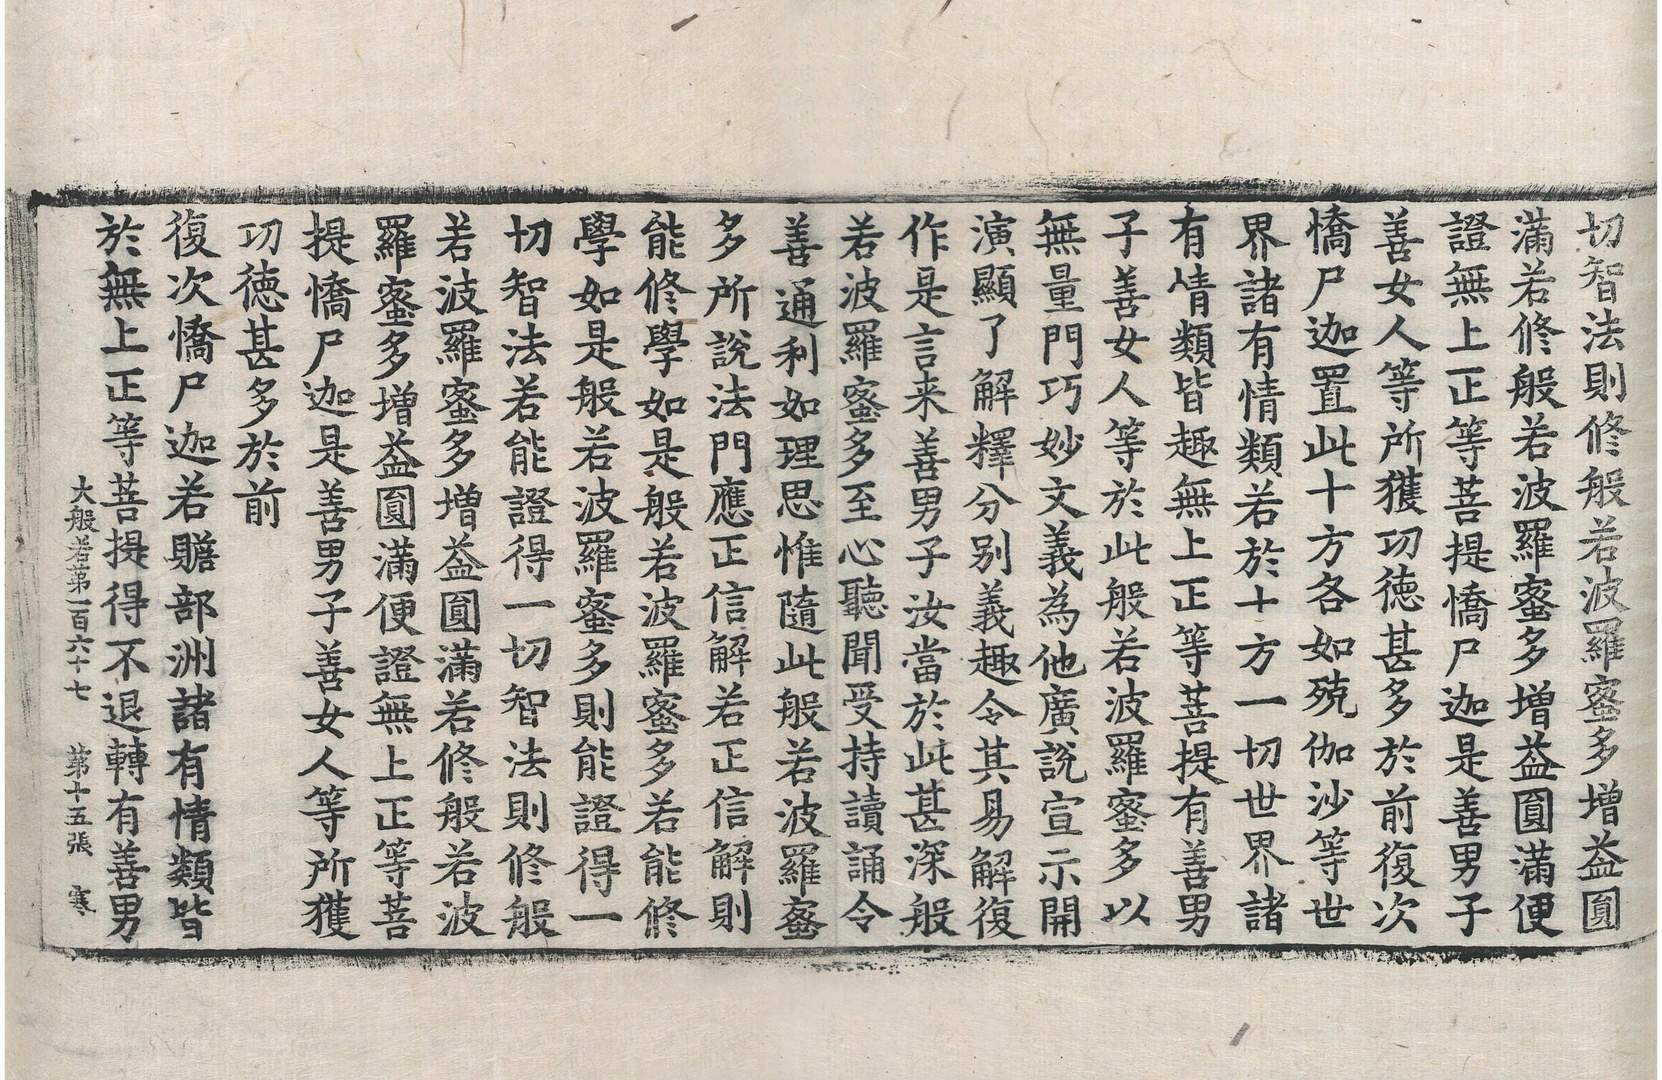 切智法則修般若波羅蜜多增益圓
滿若修般若波羅蜜多增益圓滿便
證無上正等菩提憍尸迦是善男子
善女人等所獲功德甚多於前復次
憍尸迦置此十方各如殑伽沙等世
界諸有情類若於十方一切世界諸
有情類皆趣無上正等菩提有善男
子善女人等於此般若波羅蜜多以
無量門巧妙文義為他廣說宣示開
演顯了解釋分別義趣令其易解復
作是言来善男子汝當於此甚深般
若波羅蜜多至心聽聞受持讀誦令
善通利如理思惟隨此般若波羅蜜
多所說法門應正信解若正信解則
能修學如是般若波羅蜜多若能修
學如是般若波羅蜜多則能證得一
切智法若能證得一切智法則修般
若波羅蜜多增益圓滿若修般若波
羅蜜多增益圓滿便證無上正等菩
提憍尸迦是善男子善女人等所獲
功德甚多於前
復次憍尸迦若贍部洲諸有情類皆
於無上正等菩提得不退轉有善男
大般若第一百六十七 第十五張 寒